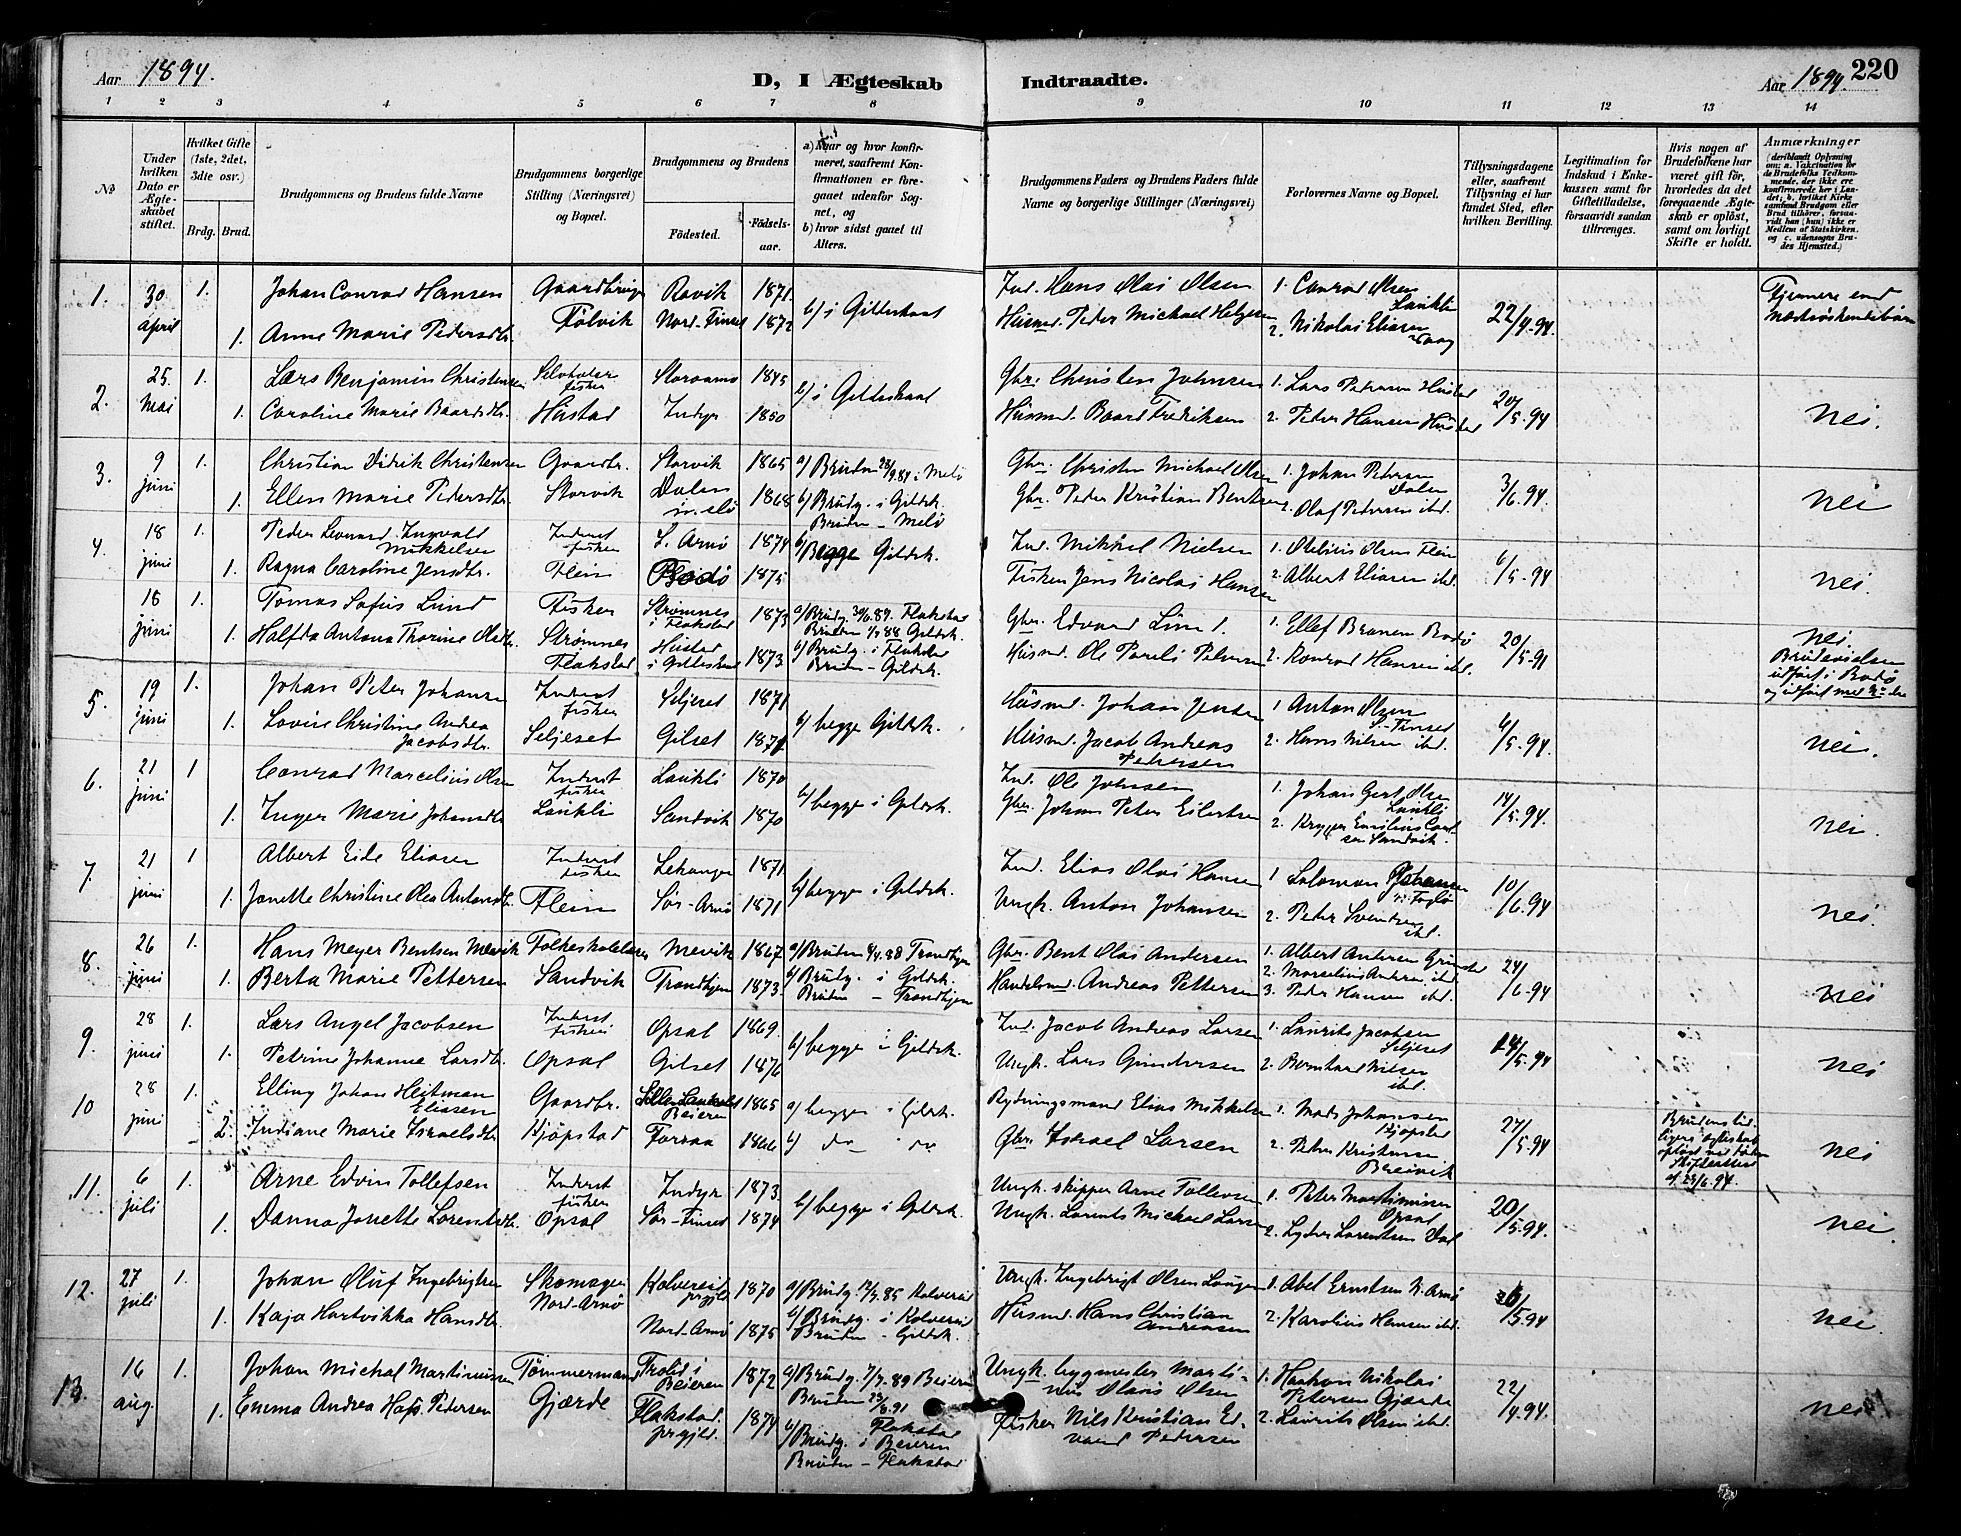 Aar 1894.
D, I Ægteskab Indtraadte.
Aar 1894. 220
1 2 3 4 5 6 7 8 9 10 11 12 13 14
No
Under hvilken Dato er Ægteskabet stiftet.
Hvilket Gifte (1ste, 2det, 3die osv.)
Brdg. Brud.
Brudgommens og Brudens fulde Navne
Brudgommens borgerlige Stilling (Næringsvei) og Bopæl.
Brudgommens og Brudens
Fødested. Fødselsaar.
a) Naar og hvor konfirmeret, saafremt Konfirmationen er foregaaet udenfor Sognet, og
b) hvor sidst gaaet til Alters.
Brudgommens Faders og Brudens Faders fulde Navne og borgerlige Stillinger (Næringsvei)
Forlovernes Navne og Bopæl.
Tillysningsdagene eller, saafremt Tillysning ei har fundet Sted, efter hvilken Bevilling.
Legitimation for Indskud i Enkekassen samt for Giftetilladelse, forsaavidt saadan tiltrænges.
Hvis nogen af Brudefolkene har været gift før, hvorledes da det foregaaende Ægteskab er opløst, samt om lovligt Skifte er holdt.
Anmærkninger
(deriblandt Oplysning om: a. Vakcination for de Brudefolks Vedkommende, der ikke ere konfirmerede her i Landet; b. hvilket Kirkesamfund Brudgom eller Brud tilhører, forsaavidt han (hun) ikke er Medlem af Statskirken, og c. udensogns Brudes Hjemsted.)
1. 30 april 1. Johan Conrad Hansen Gaardbruger Ravik 1871 b/ i Gildeskaal Ind. Hans Olai Olsen 1. Conrad Olsen Laukli 22/4-94. Fjernere end
1. Anne Marie Pedersdtr. Følvik Nord-Finset 1872 Husmd. Peder Michael Helgesen 2. Nikolai Eliasen Vaag
2. 25. Mai 1. Lars Benjamin Christensen fisker Storvarno 1845 b/ i Gildeskaal Gbr. Christen Johnsen 1. Lars Pedersen Hustad 20/5-94 nei.
1. Caroline Marie Baardsdtr. Hustad Indyr 1850 Husmd. Baard Fredriksen 2. Peder Hansen Hustad
3. 9 juni 1. Christian Didrik Christensen Gaardbr. Storvik 1865 a/ Bruden 28/9.84 i Melø Gbr. Christen Michael Olsen 1. Johan Pedersen Dalen 3/6.94. nei
1. Ellen Marie Pedersdtr. Storvik Dalen i Melø 1868 b/ Brudg. i Gildsk. Bruden - Melø Gbr. Peder Kristian Bentsen 2. Olaf Pedersen ibd.
4. 18 juni 1. Peder Leonard Ingvald Mikkelsen Inderst fisker S. Arnø 1874 b/ Begge Gildsk. Ind. Mikkel Nielsen 1. Otelius Olsen Flein 6/5-94 nei.
1. Ragna Caroline Jensdtr. Flein Bodø 1875 Fisker Jens Nicolai Hansen 2. Albert Eliasen ibd.
18 juni 1. Tomas Sofus Lund Fisker Strømnes i Flakstad 1873 a/ Brudg. 30/6.89. Flakstad Bruden 1/7 88 Gildsk. Gbr. Edvard Lund. 1. Ellef Branem Bodø 20/5-91 nei.
1. Halfda Antona Thorine Olsdtr. Strømnes Flakstad Hustad i Gildeskaal 1873. b/ Brudg. i Flakstad Bruden - Gildsk. Husmd. Ole Parelí Pedersen 2. Konrad Hansen ibd. Brudevielsen udført i Bodø
5. 19 juni 1. Johan Peter Johansen Inderst fisker Seljeset 1871 b/ begge Gildsk. Husmd. Johan Jensen 1 Anton Olsen S-Finset 6/5-94. nei.
1. Lovise Christine Andrea Jacobsdtr. Seljeset Gilset 1871 Husmd. Jacob Andreas Pedersen 2. Hans Nilsen ibd.
6. 21 juni 1 Conrad Marcelius Olsen Inderst fisker Laukli 1870 b/ begge i Gildsk. Ind. Ole Johnsen 1. Johan Gert Olsen Laukli 14/5.94. nei.
1. Inger Marie Johansdtr Laukli Sandvik 1870 Gbr. Johan Peter Eilertsen 2. Emilius Sandvik.
7. 21 juni 1 Albert Eide Eliasen Inderst fisker Lekanger 1871 b/ begge i Gildsk. Ind. Elias Olai Hansen 1 Salomon Johansen Fuglø 10/6.94 nei.
1. Jonette Christine Olea Antonsdtr. Flein Sør-Arnø 1871 Ungk. Anton Johansen 2. Peter Svendsen ibd.
8. 26 juni 1. Hans Meyer Bentsen Mevik Folkeskolelærer Mevik 1867 a/ Bruden 8/4.88 Trondhjem Gbr. Bent Olai Andersen 1. Albert Antonsen Grimstad 24/6-94 nei
1. Berta Marie Pettersen Sandvik Trondhjem 1873. b/ Brudg. i Gildsk. Bruden - Trondhjem Handelsmd. Andreas Pettersen 2. Marselius Antonsen ibd. 3. Peder Hansen ibd.
9. 28 juni 1. Lars Angel Jacobsen Inderst fisker Opsal 1869. b/ begge i Gildsk. Ind. Jacob Andreas Larsen 1. Laurits Jacobsen Seljeset 14/5-94 nei
1. Petrine Johanna Larsdtr. Opsal Gilset 1876 Ungk. Lars Gundersen 2. Bernhard Nilsen ibd.
10 28 juni 1. Elling Johan Heitman Eliasen Gaardbr. Beieren 1865 a/ begge i Gildsk. Rydningsmand Elias Mikkelsen 1. Mads Johansen Kjøpstad 27/5-94 nei
2. Indiane Marie Israelsdtr Kjøpstad Forsaa 1866 b/ do do Gbr. Israel Larsen 2. Peder Kristensen
11. 6 juli 1. Arne Edvin Tollefsen Inderst fisker Indyr 1873. b/ begge i Gildsk. Ungk. skipper Arne Tollevsen 1. Peter Martinussen Opsal 20/5-94. nei.
1. Danna Jonette Lorentsdtr. Opsal Sør-Finset 1874 Ungk. Lorents Michael Larsen 2. Lyder Lorentsen Dal
12. 27 juli 1. Johan Oluf Ingebrigtsen Skomager Kolvereid prgjld. 1870 a/ Brudg. 12/7.85 Kolvereid Ungk. Ingebrigt Olsen 1. Abel Ernstsen N. Arnø 6/5 94 nei.
1. Kaja Hartvikka Hansdtr. Nord-Arnø Nord-Arnø 1875 b/ Brudg. i Kolvereid Bruden - Gildsk. Husmd. Hans Christian Andreasen 2. Karolius Hansen ibd.
13. 16 aug. 1. Johan Michal Martinussen Tømmermand Trolid i Beieren 1872 a/ Brudg. 7/7.89 Beieren Bruden 23/8.91 Flakstad Ungk. bygmester Martinus Olaus Olsen 1. Haakon Nikolai Petersen Gjærde 22/4.94. nei
1. Emma Andrea Hafs. Pedersen Gjærde Flakstad prgjld. 1874 b/ Brudg. i Beieren Bruden - Flakstad Fisker Nils Kristian Edvard Pedersen 2. Laurits Olsen ibd.